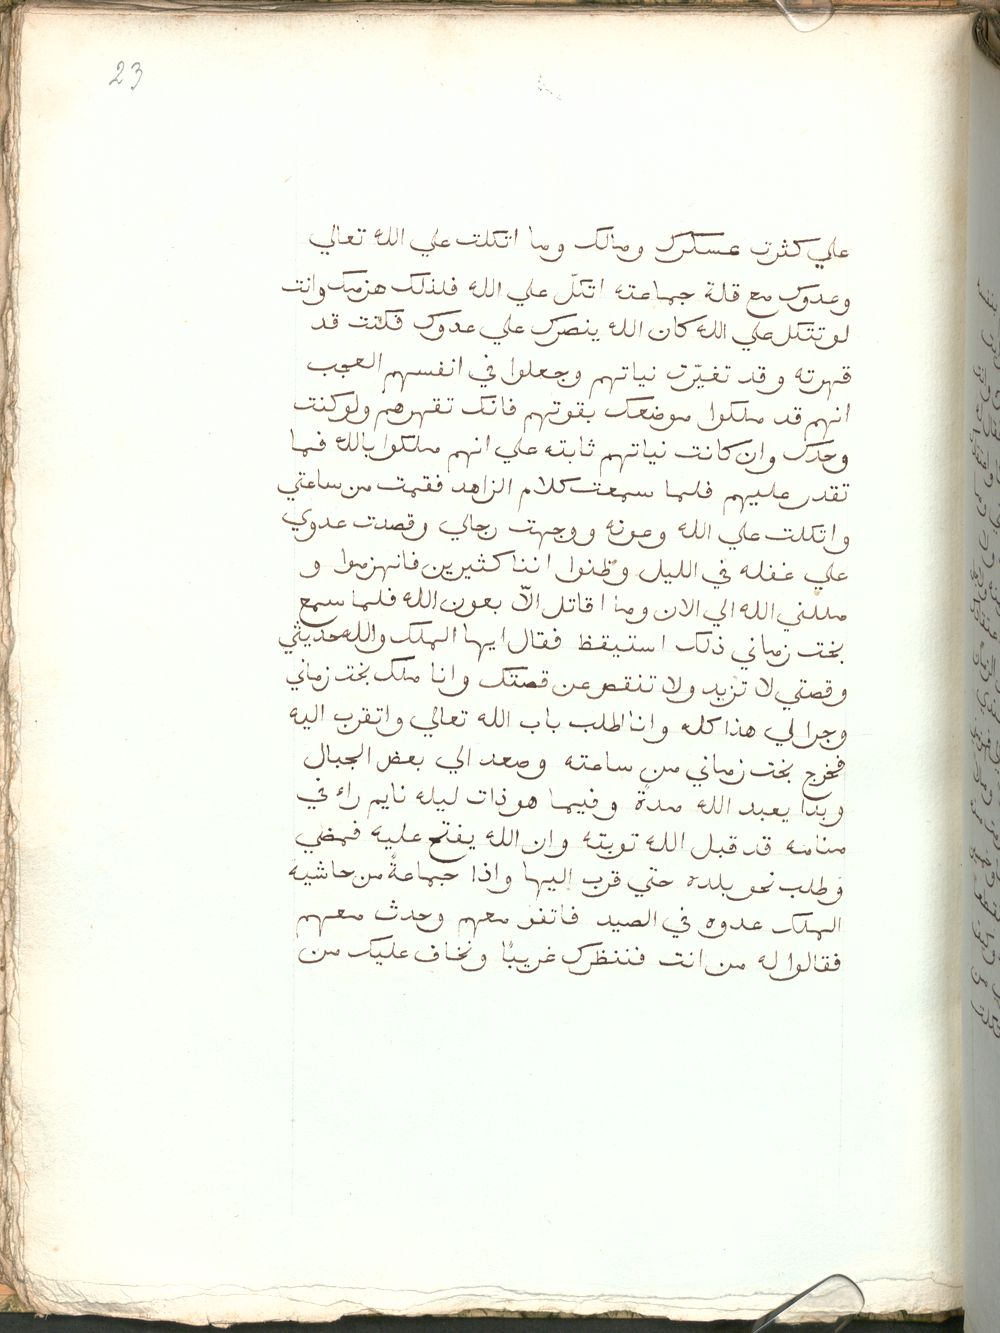 23
علي كثرت عسكرك ومالك وما اتكلت علي الله تعالي
وعدوك مع قلة جماعته اتكلّ علي الله فلذلك هزمك وانت
لو تتكل علي الله كان الله ينصرك علي عدوك فكنت قد
قهرته وقد تغيّرت نياتهم وجعلوا في انفسهم العجب
انهم قد ملكوا موضعك بقوتهم فانك تقهرهم ولو كنت
وحدك وان كانت نياتهم ثابته علي انهم ملكوا بالله فما
تقدر عليهم فلما سمعت كلام الزاهد فقمت من ساعتي
واتكلت علي الله وعونه ووجهت رجالي وقصدت عدوي
علي غفله في الليل وظنوا اننا كثيرين فانهزموا و
مللني الله الي الان وما اقاتل الاّ بعون الله فلما سمع
بخت زماني ذلك استيقظ فقال ايها الملك والله حديثي
وقصتي لا تزيد ولا تنقص عن قصتك وانا ملك بخت زماني
وجرا لي هذا كله وانا اطلب باب الله تعالي واتقرب اليه
فخرج بخت زماني من ساعته وصعد الي بعض الجبال
وبدا يعبد الله مدةً وفيما هو ذات ليله نايم راء في
منامه قد قبل الله توبته وان الله يفتح عليه فمضي
وطلب نحو بلده حتي قرب اليها واذا جماعةً من حاشية
الملك عدوه في الصيد معهم وحدث معهم
فقالوا له من انت فننظرك غريبًا ونخاف عليك من